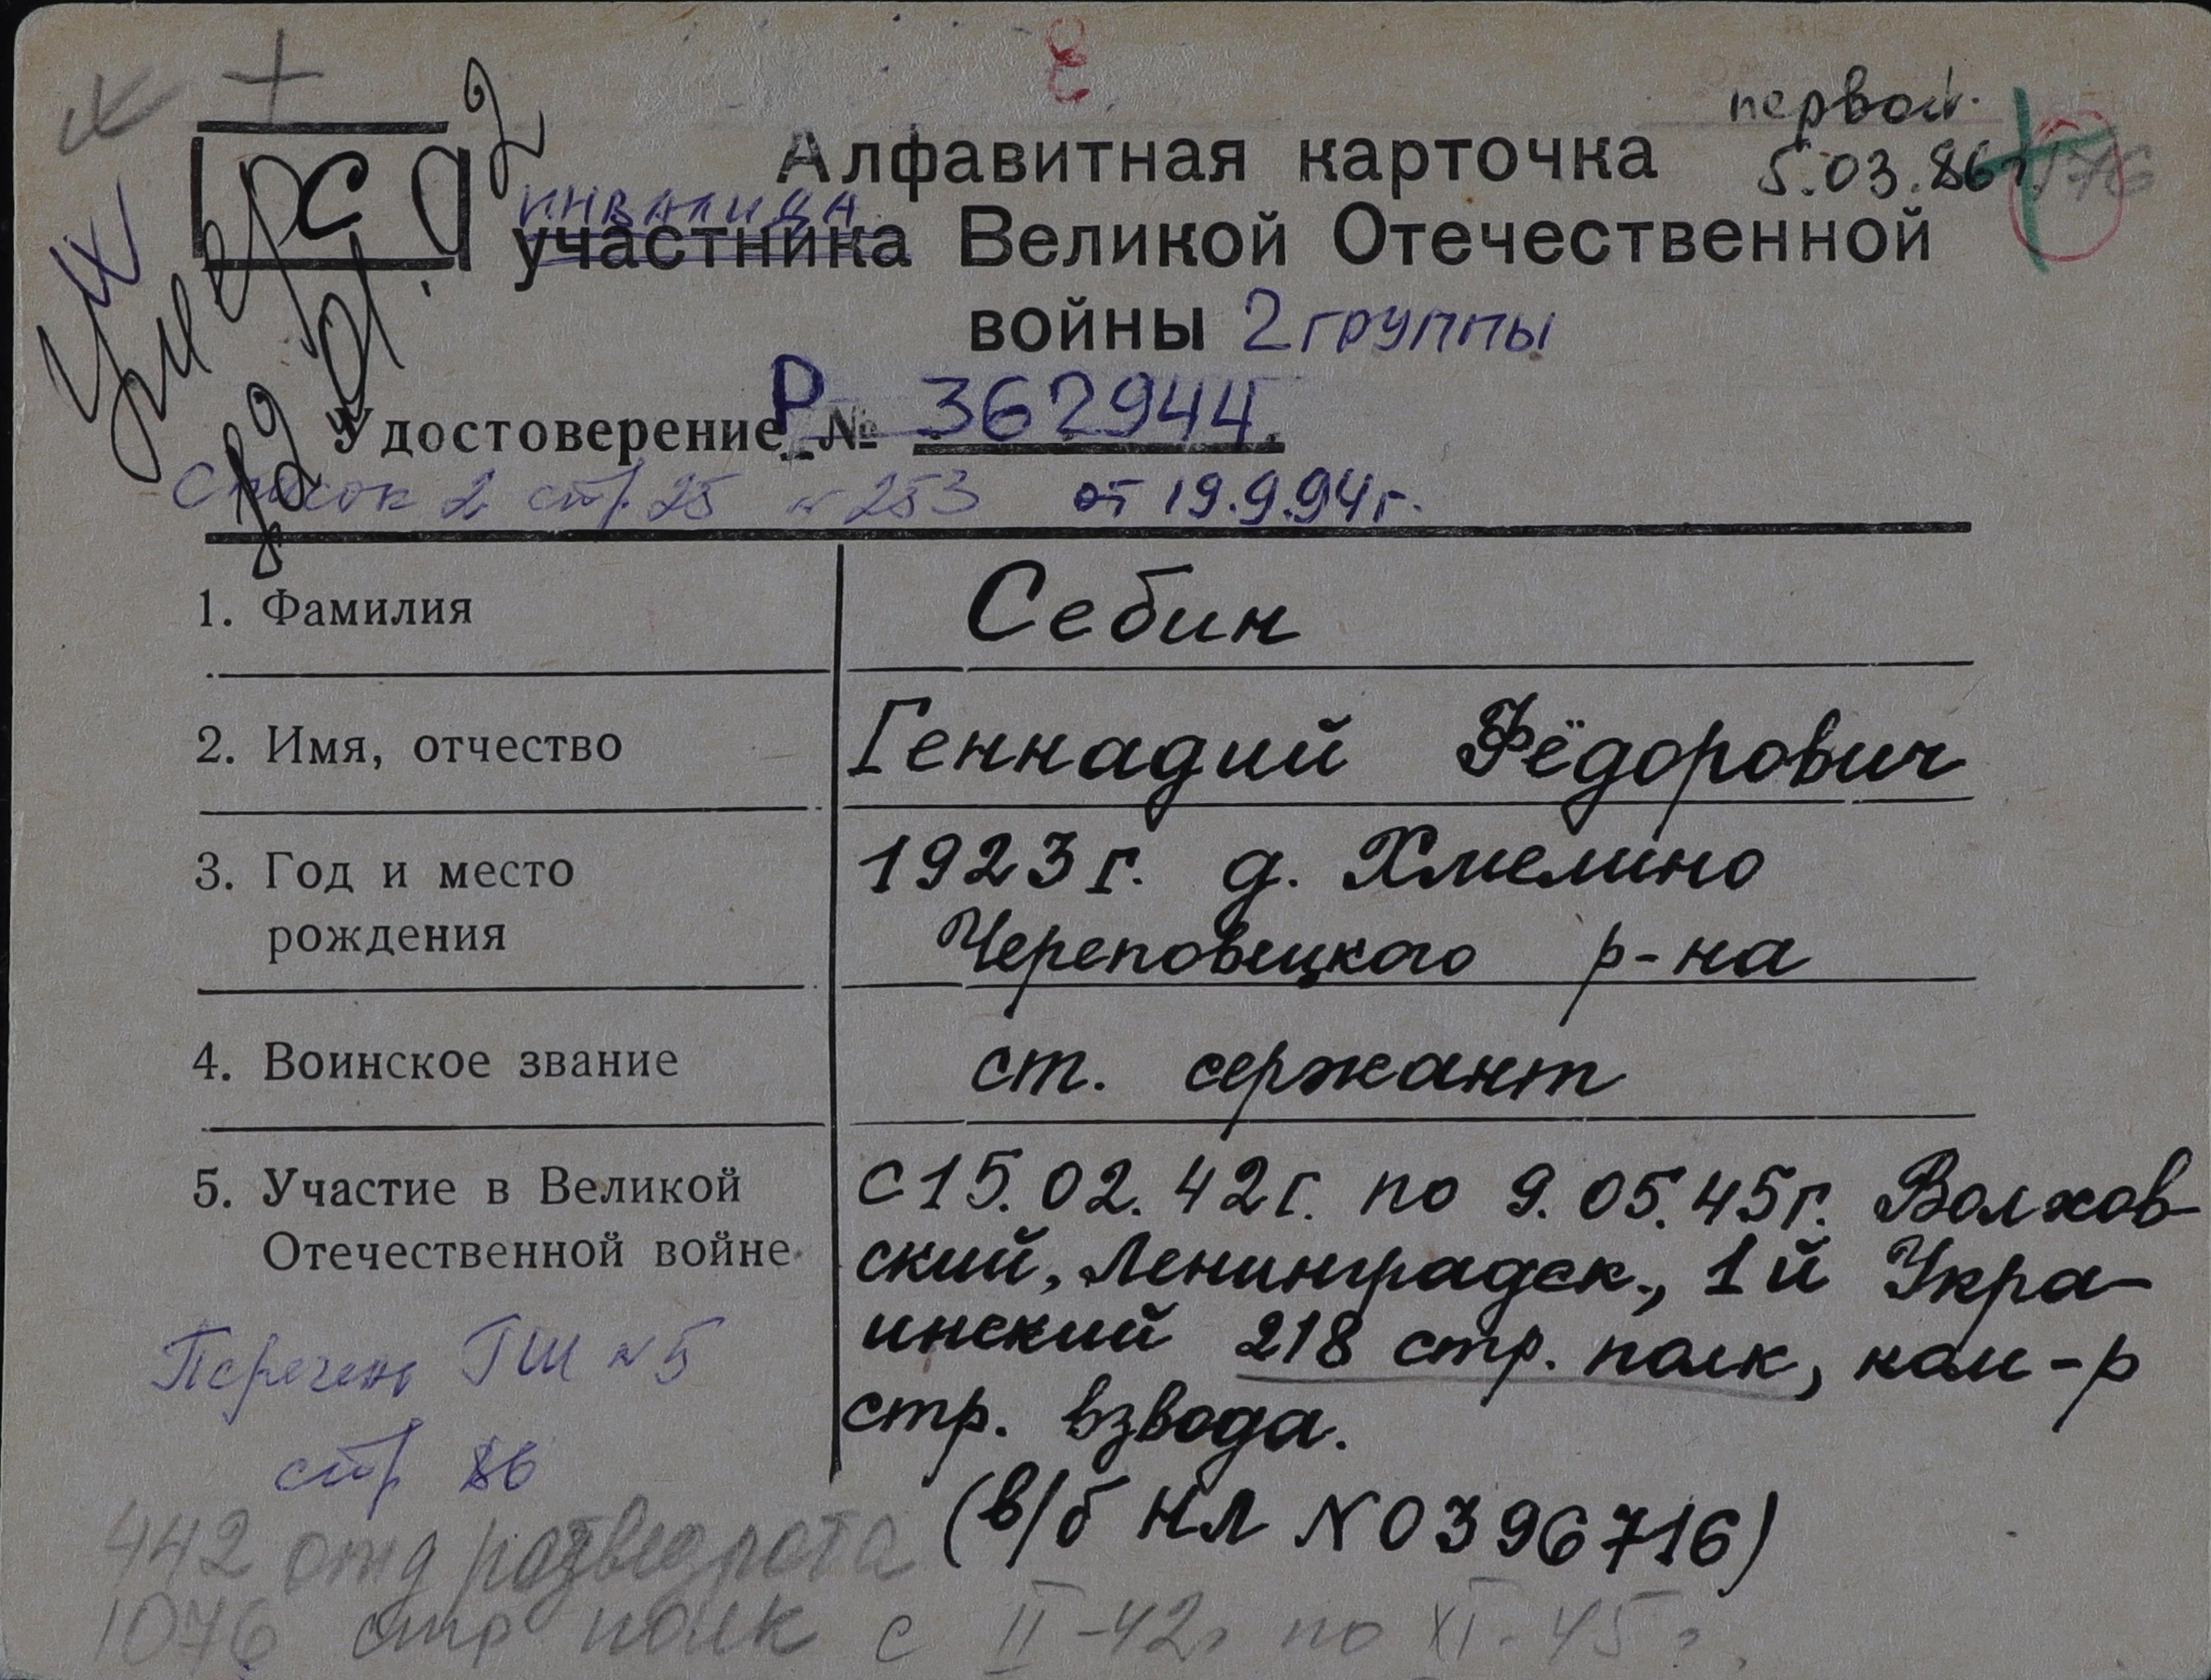 первой.
Алфавитная карточка
5.03.86г. 176
инвалида
участника Великой Отечественной
войны 2 группы
Умер
Удостоверение Р № 362944
Список 2 стр. 25 № 253 от 19.9.94г.
1. Фамилия
Себин
2. Имя, отчество
Геннадий Фёдорович
3. Год и место
рождения
1923г. д. Хмелино
Череповецкого р-на
4. Воинское звание
ст. сержант
5. Участие в Великой
Отечественной войне
с 15.02.42г. по 9.05.45г. Волхов-
ский, Ленинградск., 1й Укра-
инский 218 стр. полк, ком-р
стр. взвода.
(в/б НЛ №0396716)
Перечень ГШ №5
стр 86
442 отд разведрота
1076 стр полк с II-42г по XI-45г.